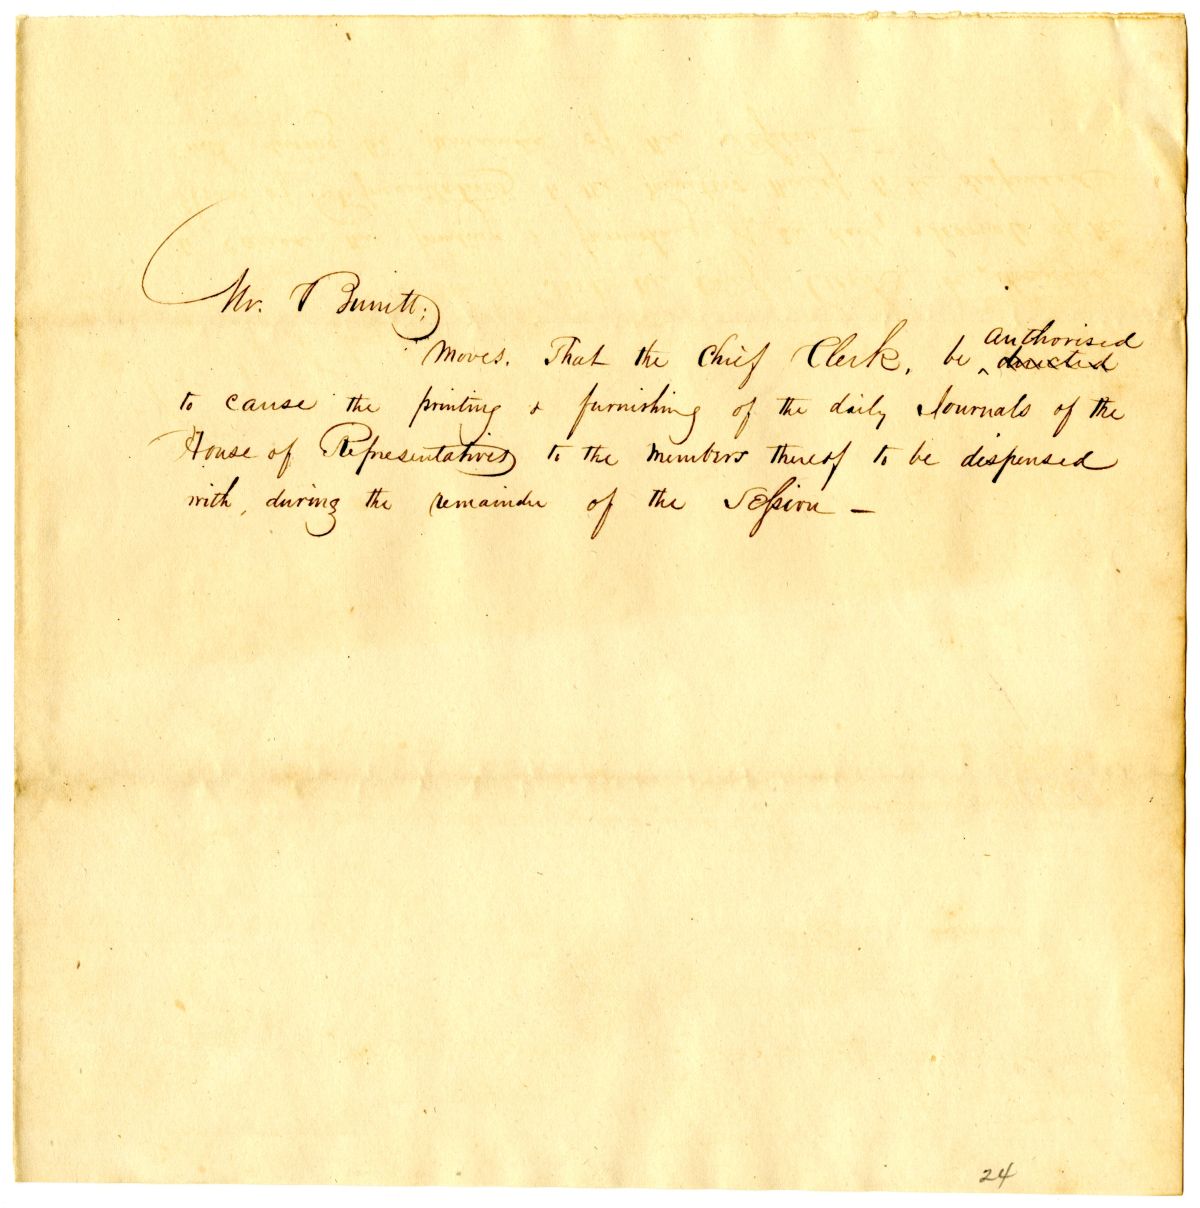 Mr. Burritt;
Moves. That the Chief Clerk, be ^ authorised directed
to cause the printing & furnishing of the daily Journals of the
House of Representatives to the members thereof to be dispensed
with, during the remainder of the Session —
24